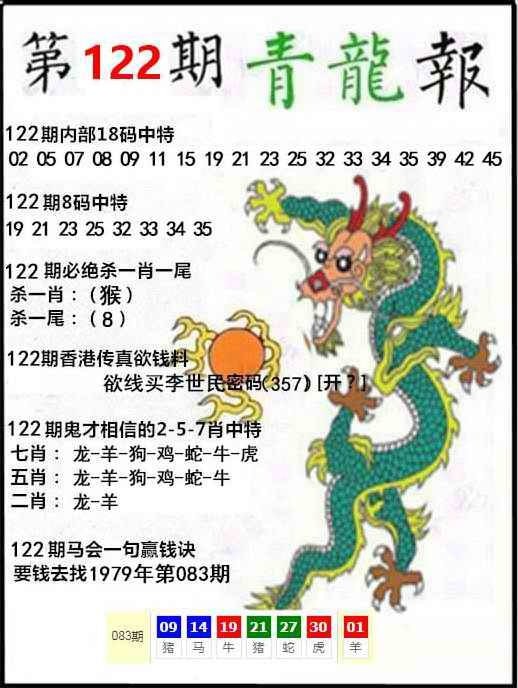 第122期青龍報
122期内部18码中特
02 05 07 08 09 11 15 19 21 23 25 32 33 34 35 39 42 45
122期8码中特
19 21 23 25 32 33 34 35
122期必绝杀一肖一尾
杀一肖：(猴)
杀一尾：(8)
122期香港传真欲钱料
欲线买李世民密码(357)[开?]
122期鬼才相信的2-5-7肖中特
七肖：龙-羊-狗-鸡-蛇-牛-虎
五肖：龙-羊-狗-鸡-蛇-牛
二肖：龙-羊
122期马会一句赢钱诀
要钱去找1979年第083期
083期 09 14 19 21 27 30 01
猪 马 牛 猪 蛇 虎 羊